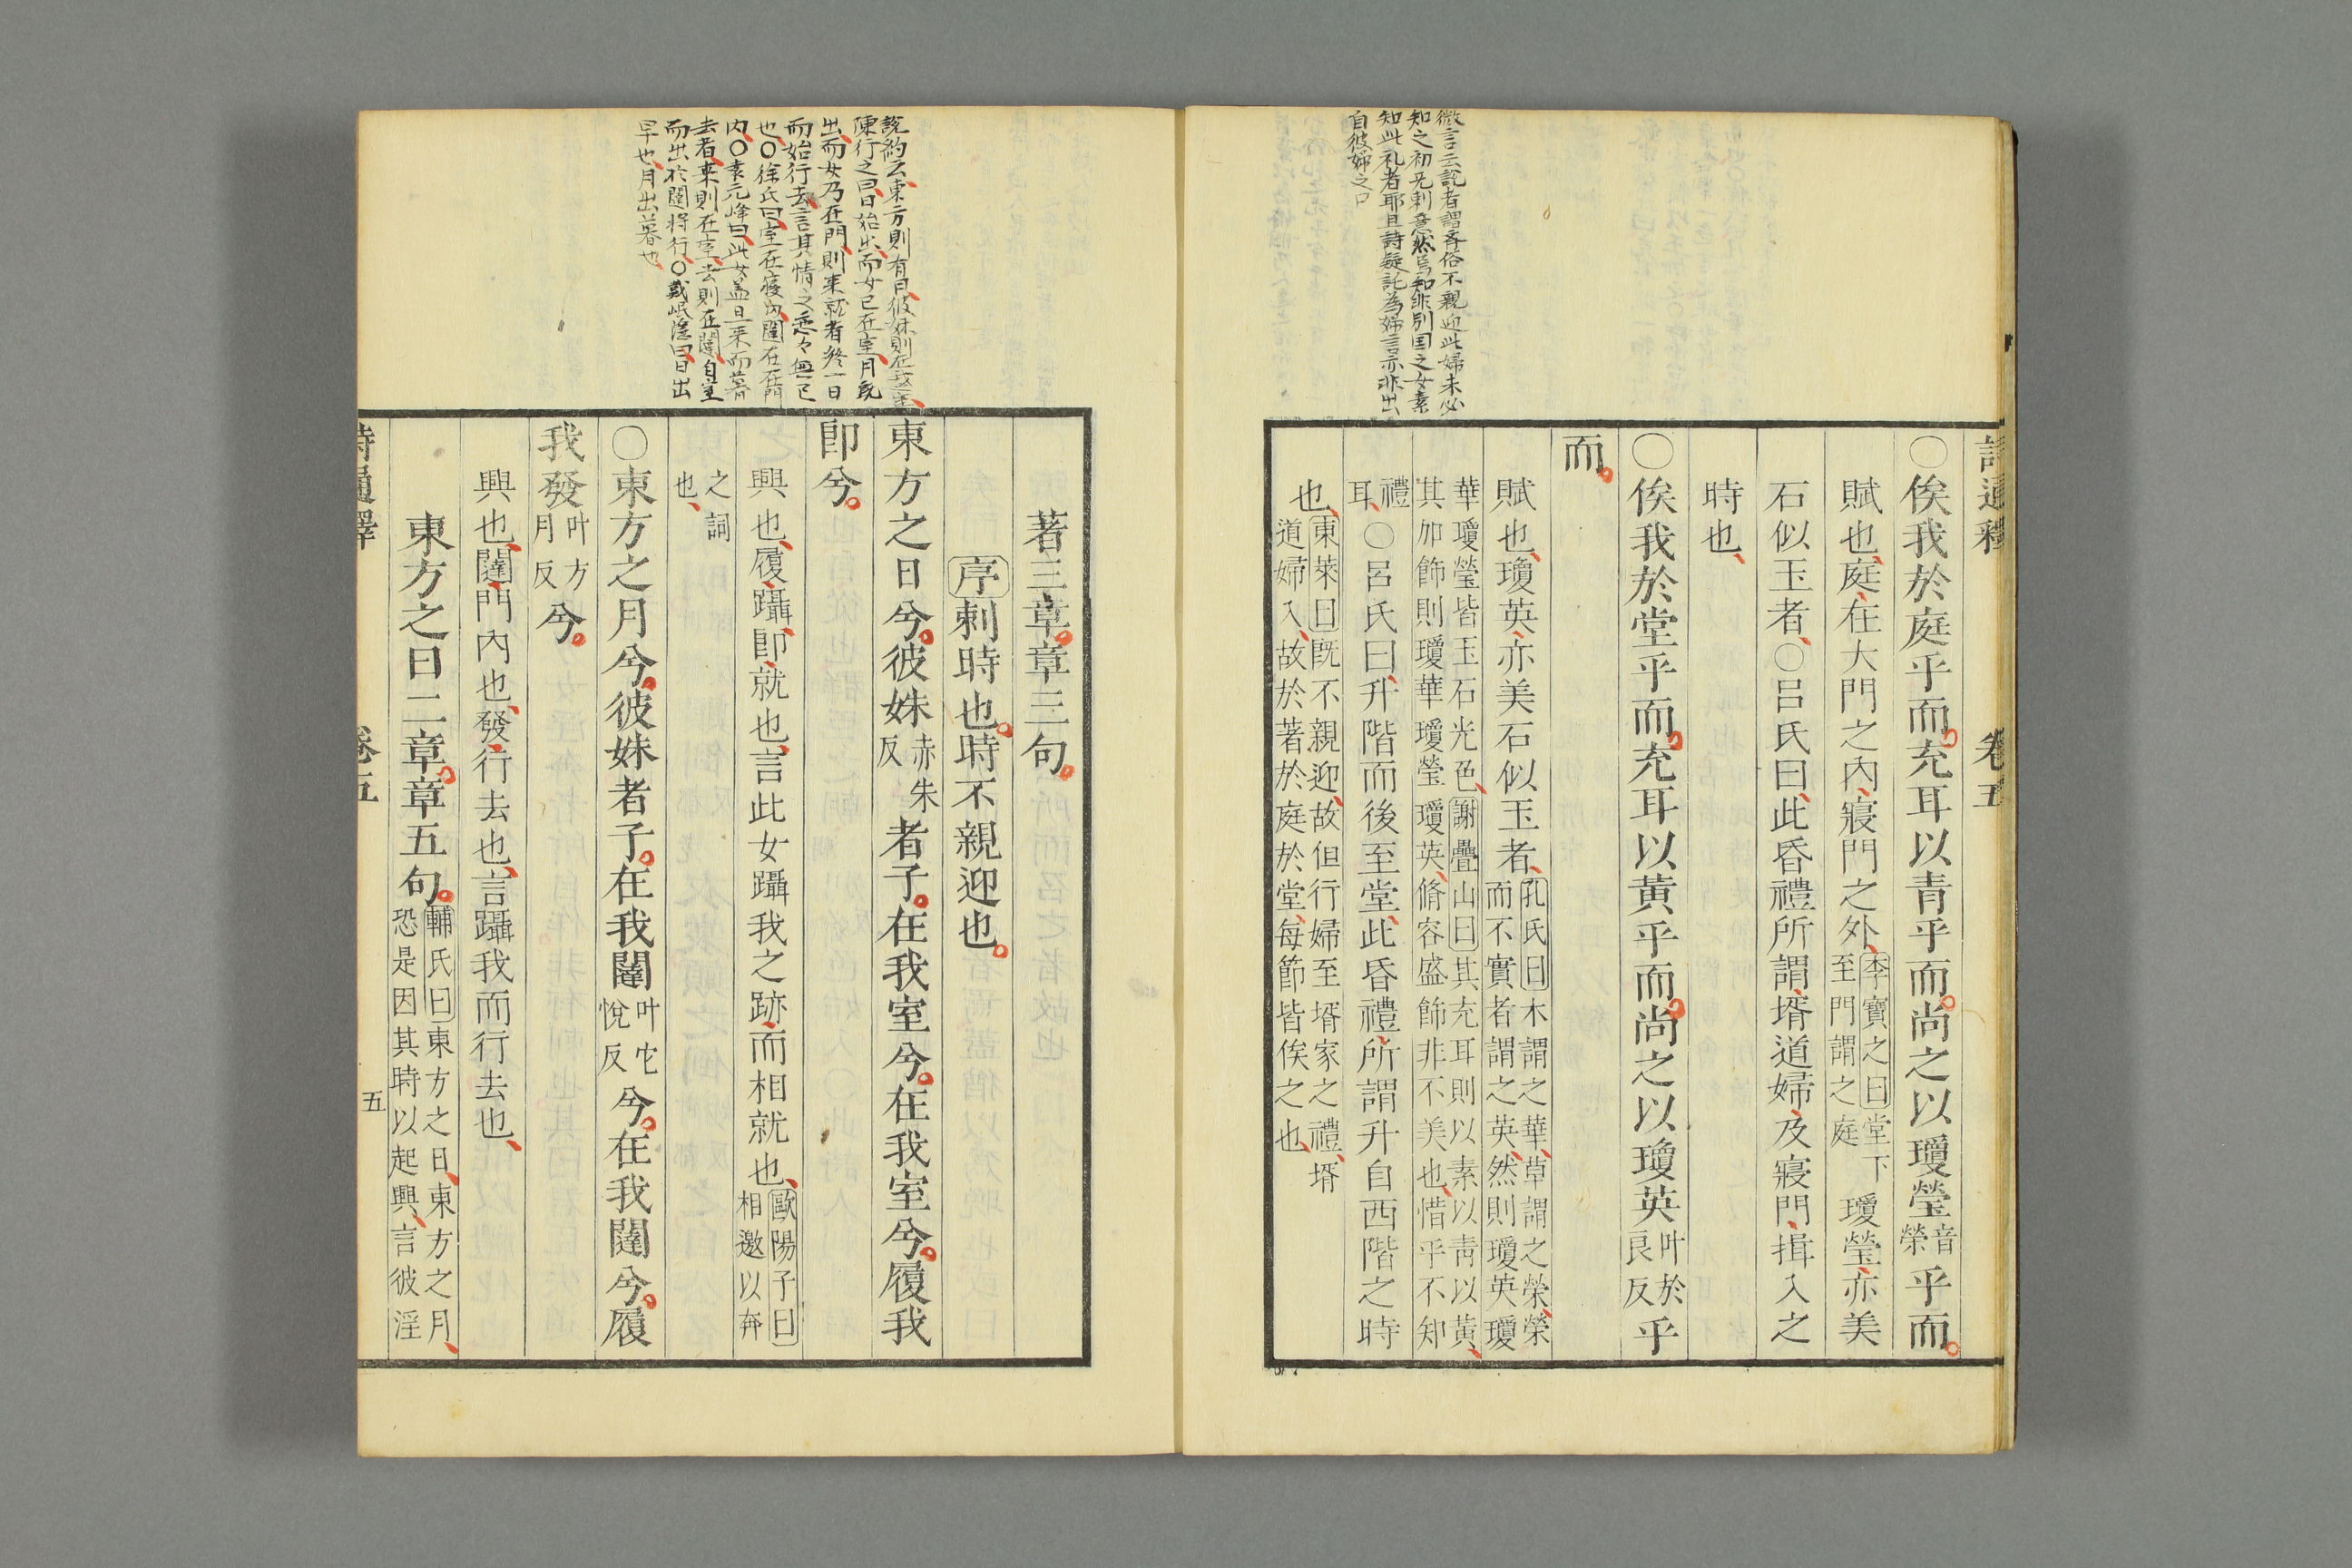 微言云說者謂齊俗不親迎此婦未必
知之初無刺意然烏知非別国之女素
知此礼者耶且詩疑託為婦言亦非出
自彼婦之口
詩通釋 卷五
○俟我於庭乎而充耳以青乎而尚之以瓊瑩音榮乎而
賦也庭在大門之內寢門之外李寶之曰堂下至門謂之庭瓊瑩亦美
石似玉者○呂氏曰此昏禮所謂壻道婦及寢門揖入之
時也
○俟我於堂乎而充耳以黃乎而尚之以瓊英叶於良反乎
而
賦也瓊英亦美石似玉者孔氏曰木謂之華草謂之榮榮而不實者謂之英然則瓊英瓊
華瓊瑩皆玉石光色謝疊山曰其充耳則以素以青以黃
其加飾則瓊華瓊瑩瓊英脩容盛飾非不美也惜乎不知
禮耳○呂氏曰升階而後至堂此昏禮所謂升自西階之時
也東萊曰既不親迎故但行婦至壻家之禮壻道婦入故於著於庭於堂每節皆俟之也
說約云東方則有日彼姝則在我室
陳行之曰日始出而女已在室月既
出而女乃在門則來就者終一日
而始行去言其情之戀々無已
也○徐氏曰室在寢內闥在門
內○袁元峰曰此女盖旦來而暮
去者來則在室去則在闥自室
而出於闥將行○戴岷隱曰日出
早也月出暮也
著三章章三句
序刺時也時不親迎也
東方之日兮彼姝赤朱反者子在我室兮在我室兮履我
卽兮
興也履躡卽就也言此女躡我之跡而相就也歐陽子曰相邀以奔
之詞也
○東方之月兮彼姝者子在我闥叶它悅反兮在我闥兮履
我發叶方月反兮
興也闥門內也發行去也言躡我而行去也
東方之日二章章五句輔氏曰東方之日東方之月恐是因其時以起興言彼淫
詩通釋 卷五 五